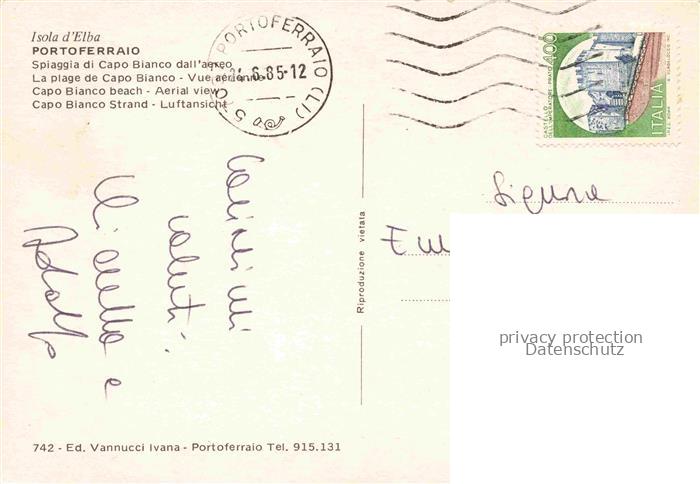 Isola d'Elba
PORTOFERRAIO
Spiaggia di Capo Bianco dall'aereo
La plage de Capo Bianco - Vue aérienne
Capo Bianco beach - Aerial view
Capo Bianco Strand - Luftansicht
PORTOFERRAIO (LI)
6.85-12
400
CASTELLO
DELL'IMPERATORE PRATO
ITALIA
Cordiali
saluti.
e
Adolfo
Riproduzione vietata
Signora
privacy protection
Datenschutz
742 - Ed. Vannucci Ivana - Portoferraio Tel. 915.131